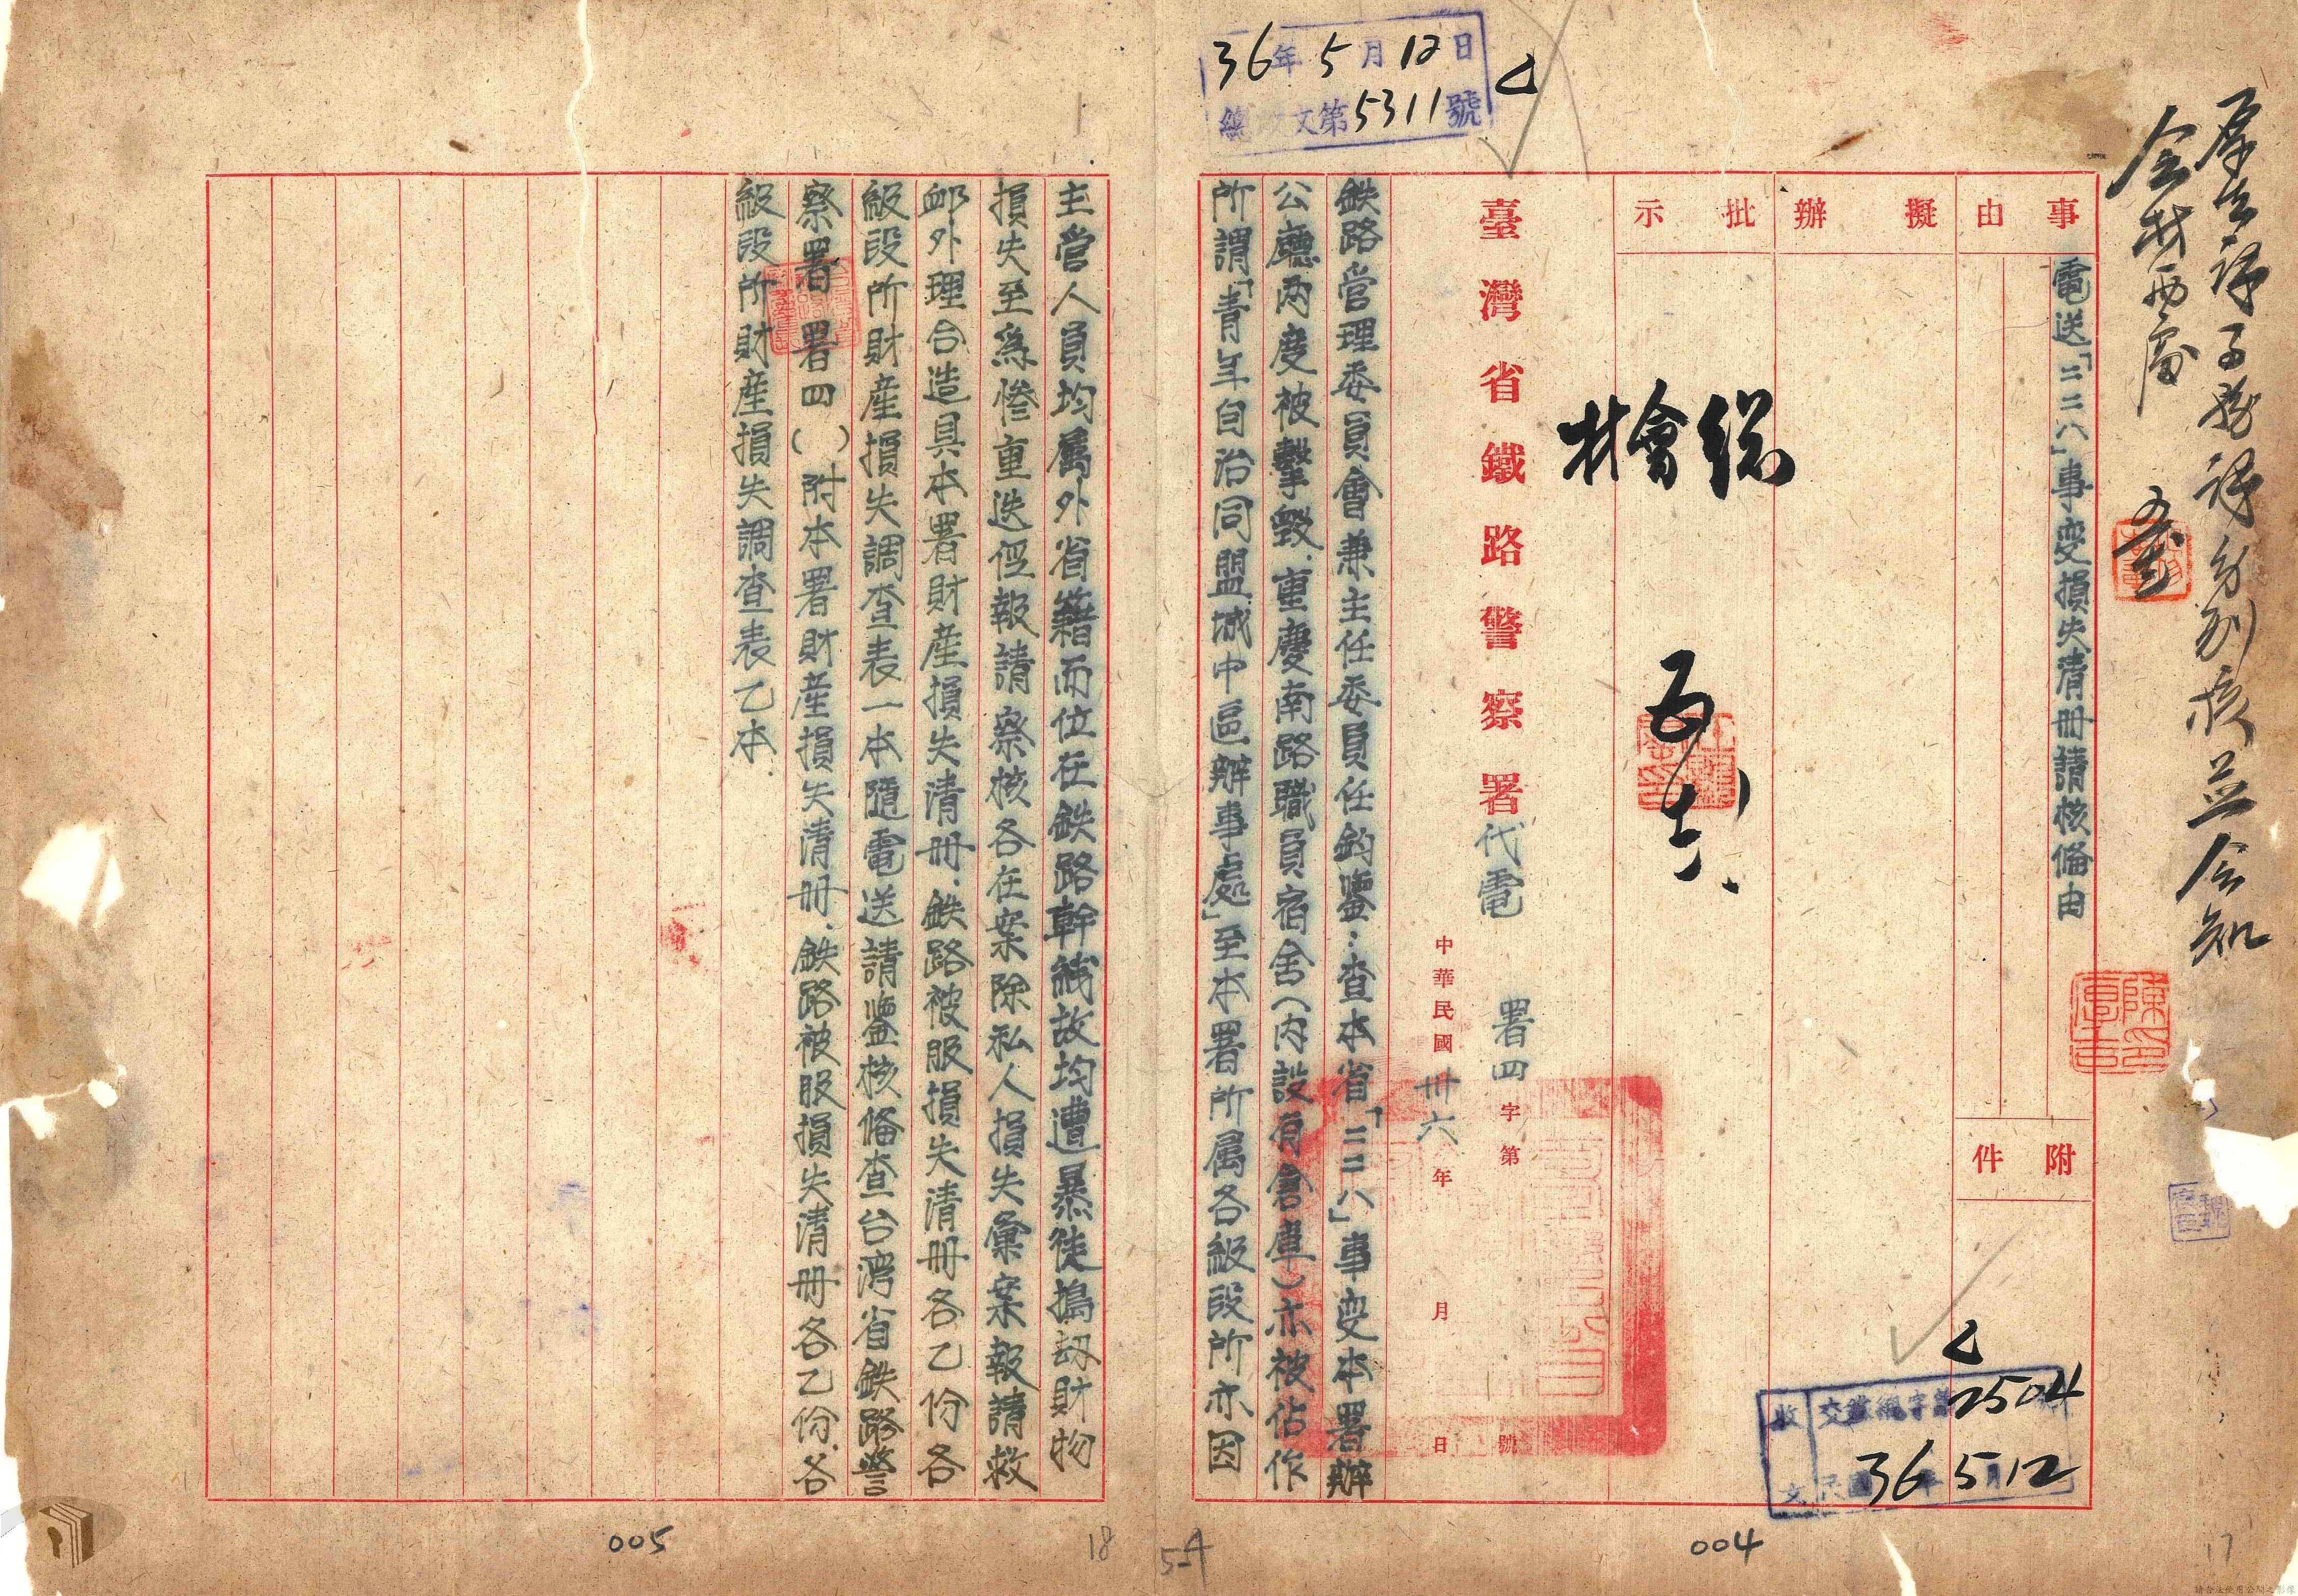 36年5月12日
總收文第5311號
事由
電送「二二八」事变損失清册請核俻由
附件
擬辦
批示
総
會
材
臺灣省鐵路警察署代電
署四字第 號
中華民國卅六年 月 日
鉄路管理委員會兼主任委員任鈞鑒：查本省「二二八」事变本署辦
公廳两度被擊毀．重慶南路職員宿舍（内設有倉庫）亦被佔作
所謂「青年自治同盟城中區辦事處」至本署所属各級段所亦因
主管人員均属外省籍而位在鉄路幹綫故均遭暴徒搗刼財物
損失至為慘重迭經報請察核各在案除私人損失彙案報請救
卹外理合造具本署財産損失清册．鉄路被服損失清册各乙份各
級段所財産損失調查表一本隨電送請鑒核俻查台湾省鉄路警
察署 署四（ ）附本署財産損失清册．鉄路被服損失清册各乙份．各
級段所財産損失調查表乙本．
收文
交鐵總字第2504號
民國36年5月12
004
005
17
18
5-4